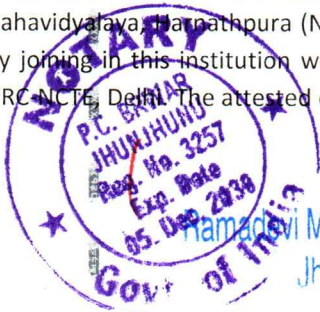 ahavidyalaya, Harnathpura (N
y joining in this institution w
RC-NCTE, Delhi. The attested
NOTARY
P.C. BANJAR
JHUNJHUNU
Reg. No. 3257
Exp. Date
05. Dec. 2030
Govt of India
Ramadevi M
Jh